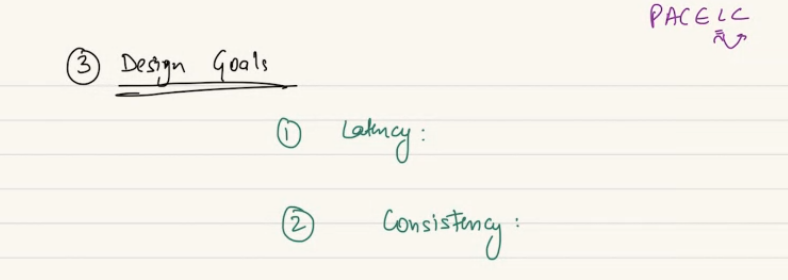 PACELC
③ Design Goals
① Latency:
② Consistency: